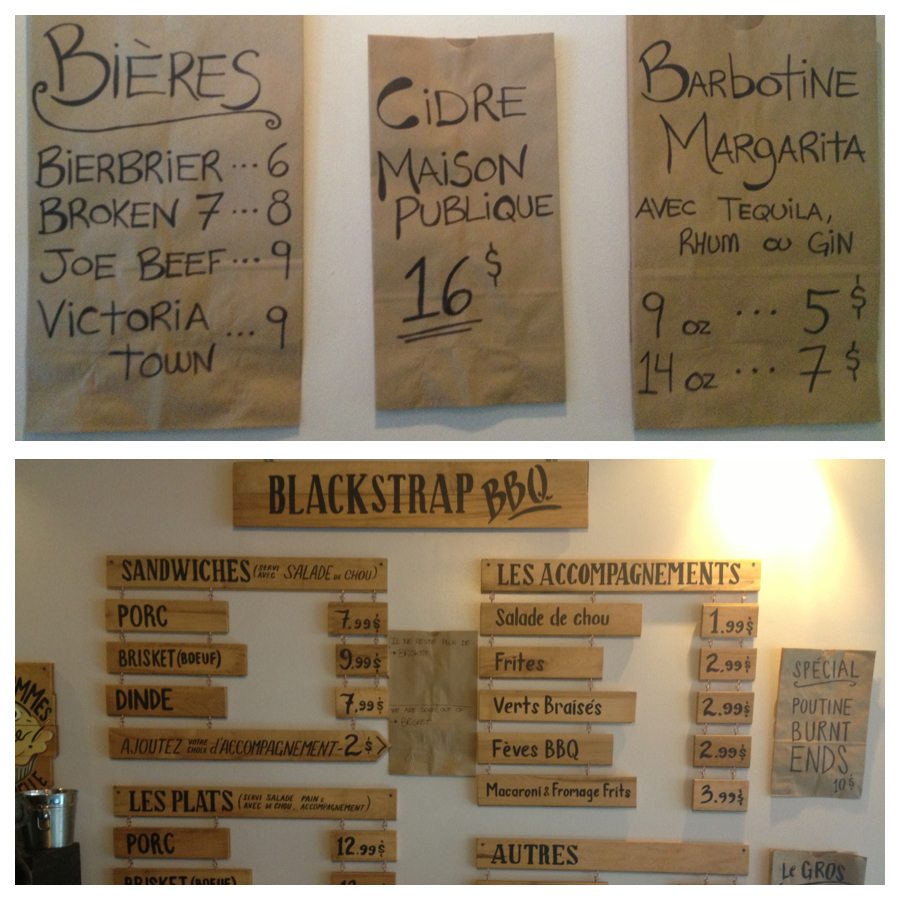 BIÈRES
BIERBRIER ... 6
BROKEN 7 ... 8
JOE BEEF ... 9
VICTORIA TOWN ... 9
CIDRE
MAISON
PUBLIQUE
16$
BARBOTINE
MARGARITA
AVEC TEQUILA,
RHUM OU GIN
9 OZ ... 5$
14 OZ ... 7$
BLACKSTRAP BBQ
SANDWICHES (SERVI AVEC SALADE DE CHOU)
PORC 7.99$
BRISKET (BOEUF) 9.99$
DINDE 7.99$
AJOUTEZ VOTRE CHOIX d'ACCOMPAGNEMENT - 2$
LES PLATS (SERVI AVEC SALADE DE CHOU, PAIN & ACCOMPAGNEMENT)
PORC 12.99$
BRISKET (BOEUF)
IL NE RESTE PLUS DE
• BRISKET
WE ARE SOLD OUT OF
• BRISKET
LES ACCOMPAGNEMENTS
Salade de chou 1.99$
Frites 2.99$
Verts Braisés 2.99$
Fèves BBQ 2.99$
Macaroni & Fromage Frits 3.99$
AUTRES
SPÉCIAL
POUTINE
BURNT
ENDS
10$
Le GROS